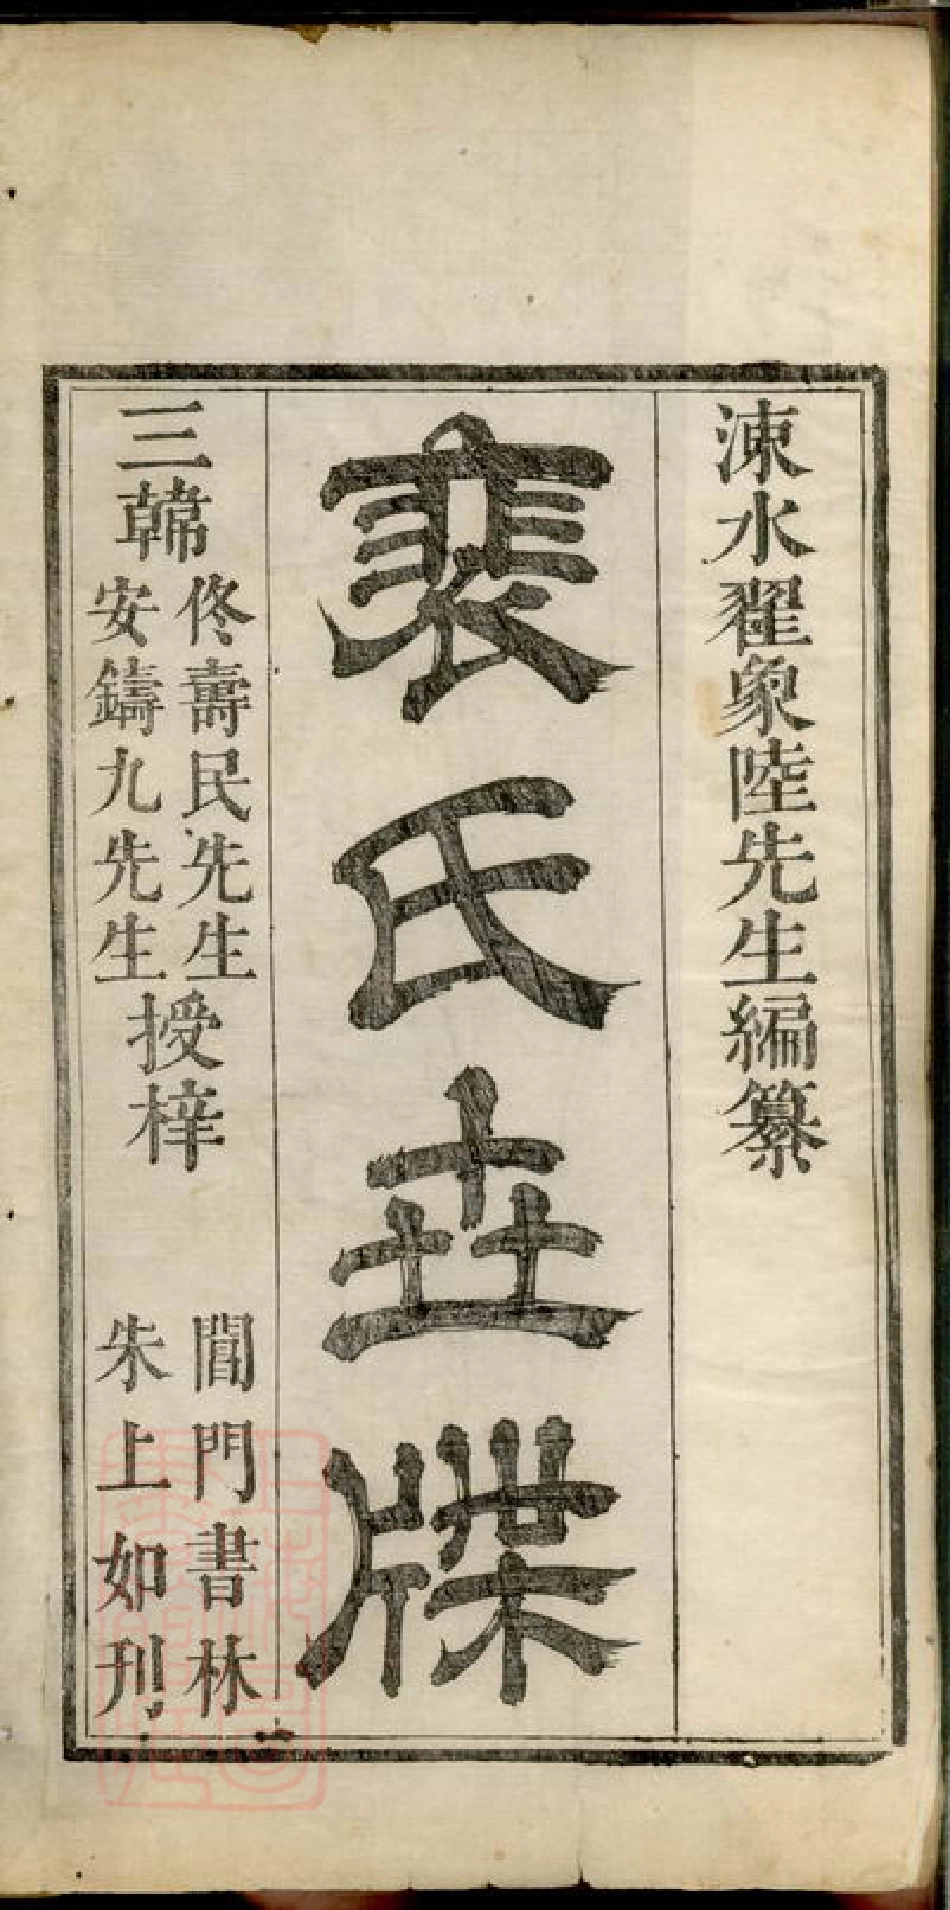 涑水翟象陸先生編纂
裴氏世牒
三韓
佟壽民先生
安鑄九先生
授梓
閶門書林
朱上如刊